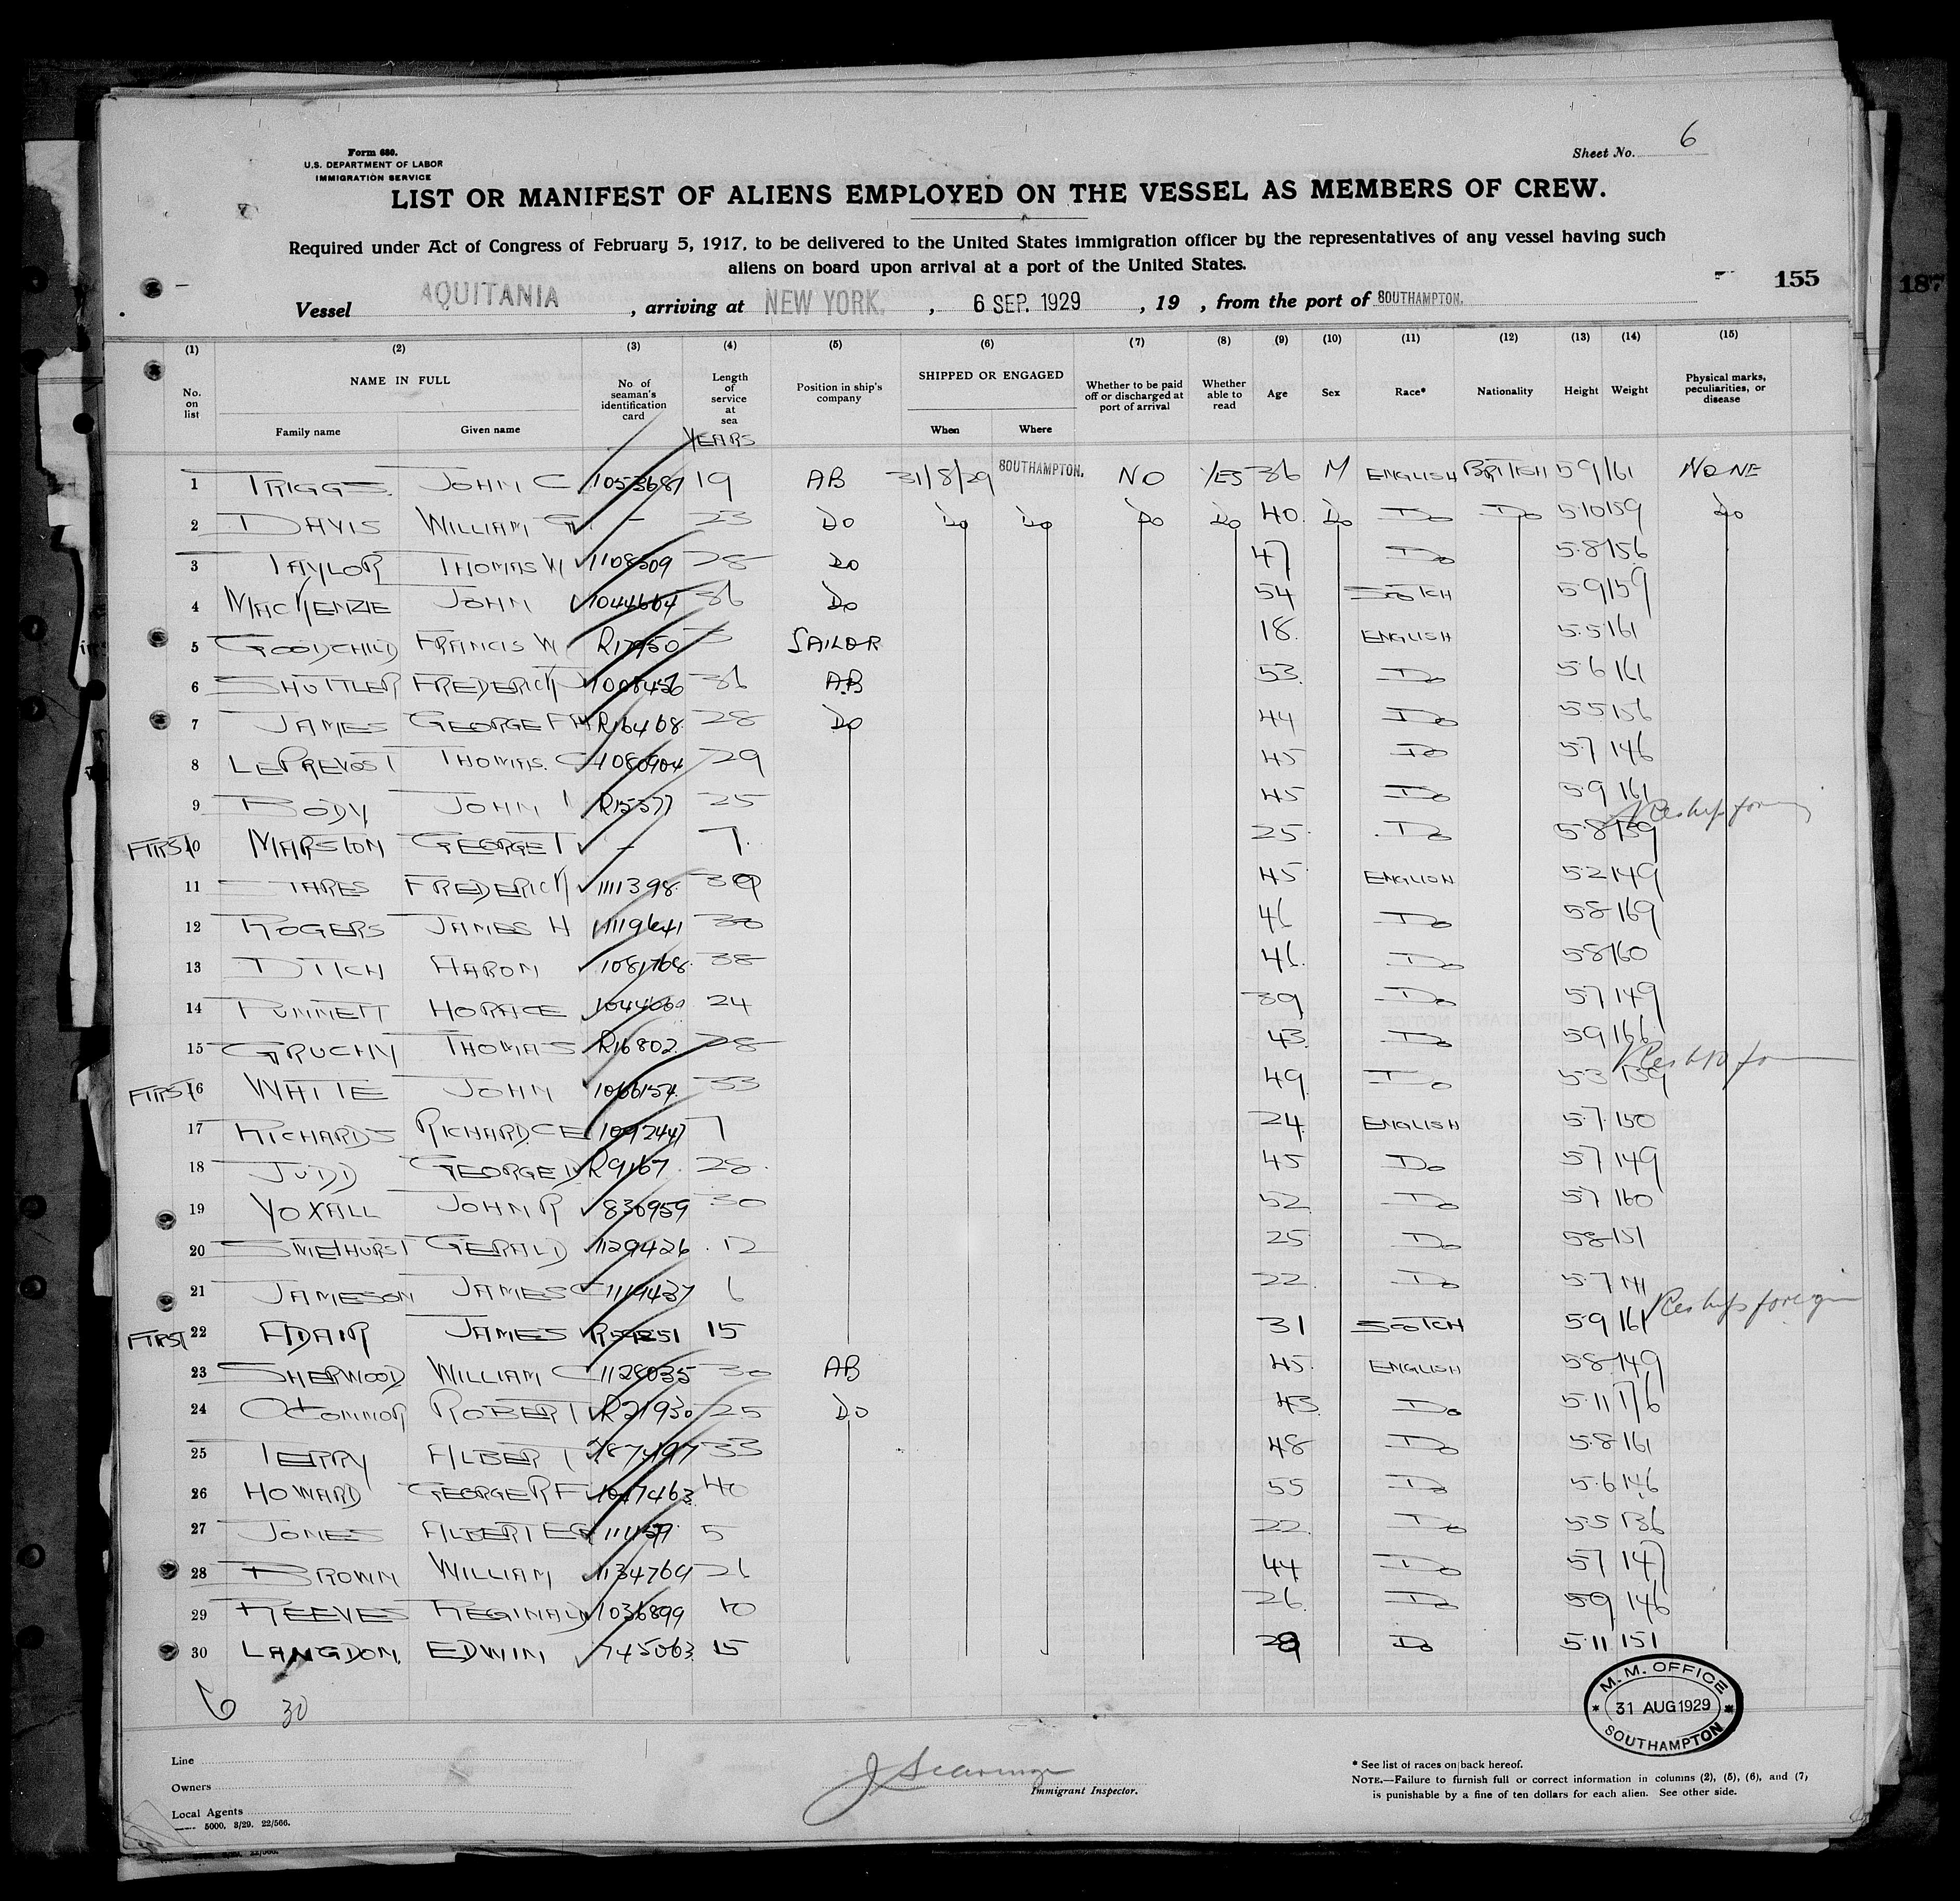 Form 680.
U.S. DEPARTMENT OF LABOR
IMMIGRATION SERVICE
Sheet No. 6
LIST OR MANIFEST OF ALIENS EMPLOYED ON THE VESSEL AS MEMBERS OF CREW.
Required under Act of Congress of February 5, 1917, to be delivered to the United States immigration officer by the representatives of any vessel having such
aliens on board upon arrival at a port of the United States.
155
187
Vessel AQUITANIA, arriving at NEW YORK., 6 SEP. 1929, 19 , from the port of SOUTHAMPTON.
(1) (2) (3) (4) (5) (6) (7) (8) (9) (10) (11) (12) (13) (14) (15)
No. on list NAME IN FULL Family name Given name No. of seaman's identification card Length of service at sea Position in ship's company SHIPPED OR ENGAGED When Where Whether to be paid off or discharged at port of arrival Whether able to read Age Sex Race* Nationality Height Weight Physical marks, peculiarities, or disease
YEARS
1 TRIGGS. JOHN C 1053687 19 AB 31/8/29 SOUTHAMPTON. NO YES 36 M ENGLISH BRITISH 59 161 NONE
2 DAVIS WILLIAM G. – 23 Do Do Do Do Do 40 Do Do Do 5.10 159 Do
3 TAYLOR THOMAS W 1108509 28 Do 47 Do 5.8 156
4 MACKENZIE JOHN 1044664 36 Do 54 SCOTCH 59 159
5 GOODCHILD FRANCIS W R17950 SAILOR 18. ENGLISH 5.5 161
6 SHUTTLER FREDERICK 1008456 36 AB 53. Do 5.6 161
7 JAMES GEORGE F H R16468 28 Do 44 Do 55 156
8 LEPREVOST THOMAS. C 1080904 29 45 Do 5.7 146
9 BODY JOHN R15377 25 45 Do 59 161
FIRST 10 MARSTON GEORGE T – 7. 25 Do 5.8 159
11 STARES FREDERICK 1111398. 45 ENGLISH 52 149
12 ROGERS JAMES H 1119641 30 46 Do 58 169
13 DITCH AARON 1081768. 38 46. Do 58 160
14 PUNNETT HORACE 24 39 Do 57 149
15 GRUCHY THOMAS R16802. 28 43 Do 59 166
FIRST 16 WHITE JOHN 1066154. 33 49 Do 53 159
17 RICHARDS RICHARD.C E 1092447 7 24 ENGLISH 5.7. 150
18 JUDD GEORGE D R9167 28. 45 Do 57 149
19 YOXALL JOHN R 830959 30 52 Do 57 160
20 SMETHURST GERALD 1129426 12 25 Do 58 151
21 JAMESON JAMES C 1119437 6 22 Do 5.7 141
Reships foreign
FIRST 22 ADAIR JAMES 15 31 SCOTCH 59 161
23 SHERWOOD WILLIAM C 1128035 30 AB 45. ENGLISH 58 149
24 O'CONNOR ROBERT R21930 25 Do 43. Do 5.11 176
25 TERRY ALBERT 33 48 Do 5.8 161
26 HOWARD GEORGE R F 1047463. 40 55 Do 5.6 146
27 JONES ALBERT E G 5 22 Do 55 136
28 BROWN WILLIAM 1134769 26 44 Do 57 147
29 REEVES REGINALD 1036899 10 26. Do 59 146
30 LANGDON. EDWIN 745063. 15 Do 5.11 151
6 30
M.M. OFFICE
* 31 AUG 1929 *
SOUTHAMPTON
Line
Owners
Local Agents
5000, 3/29. 22/566.
Immigrant Inspector.
* See list of races on back hereof.
NOTE.—Failure to furnish full or correct information in columns (2), (5), (6), and (7)
is punishable by a fine of ten dollars for each alien. See other side.